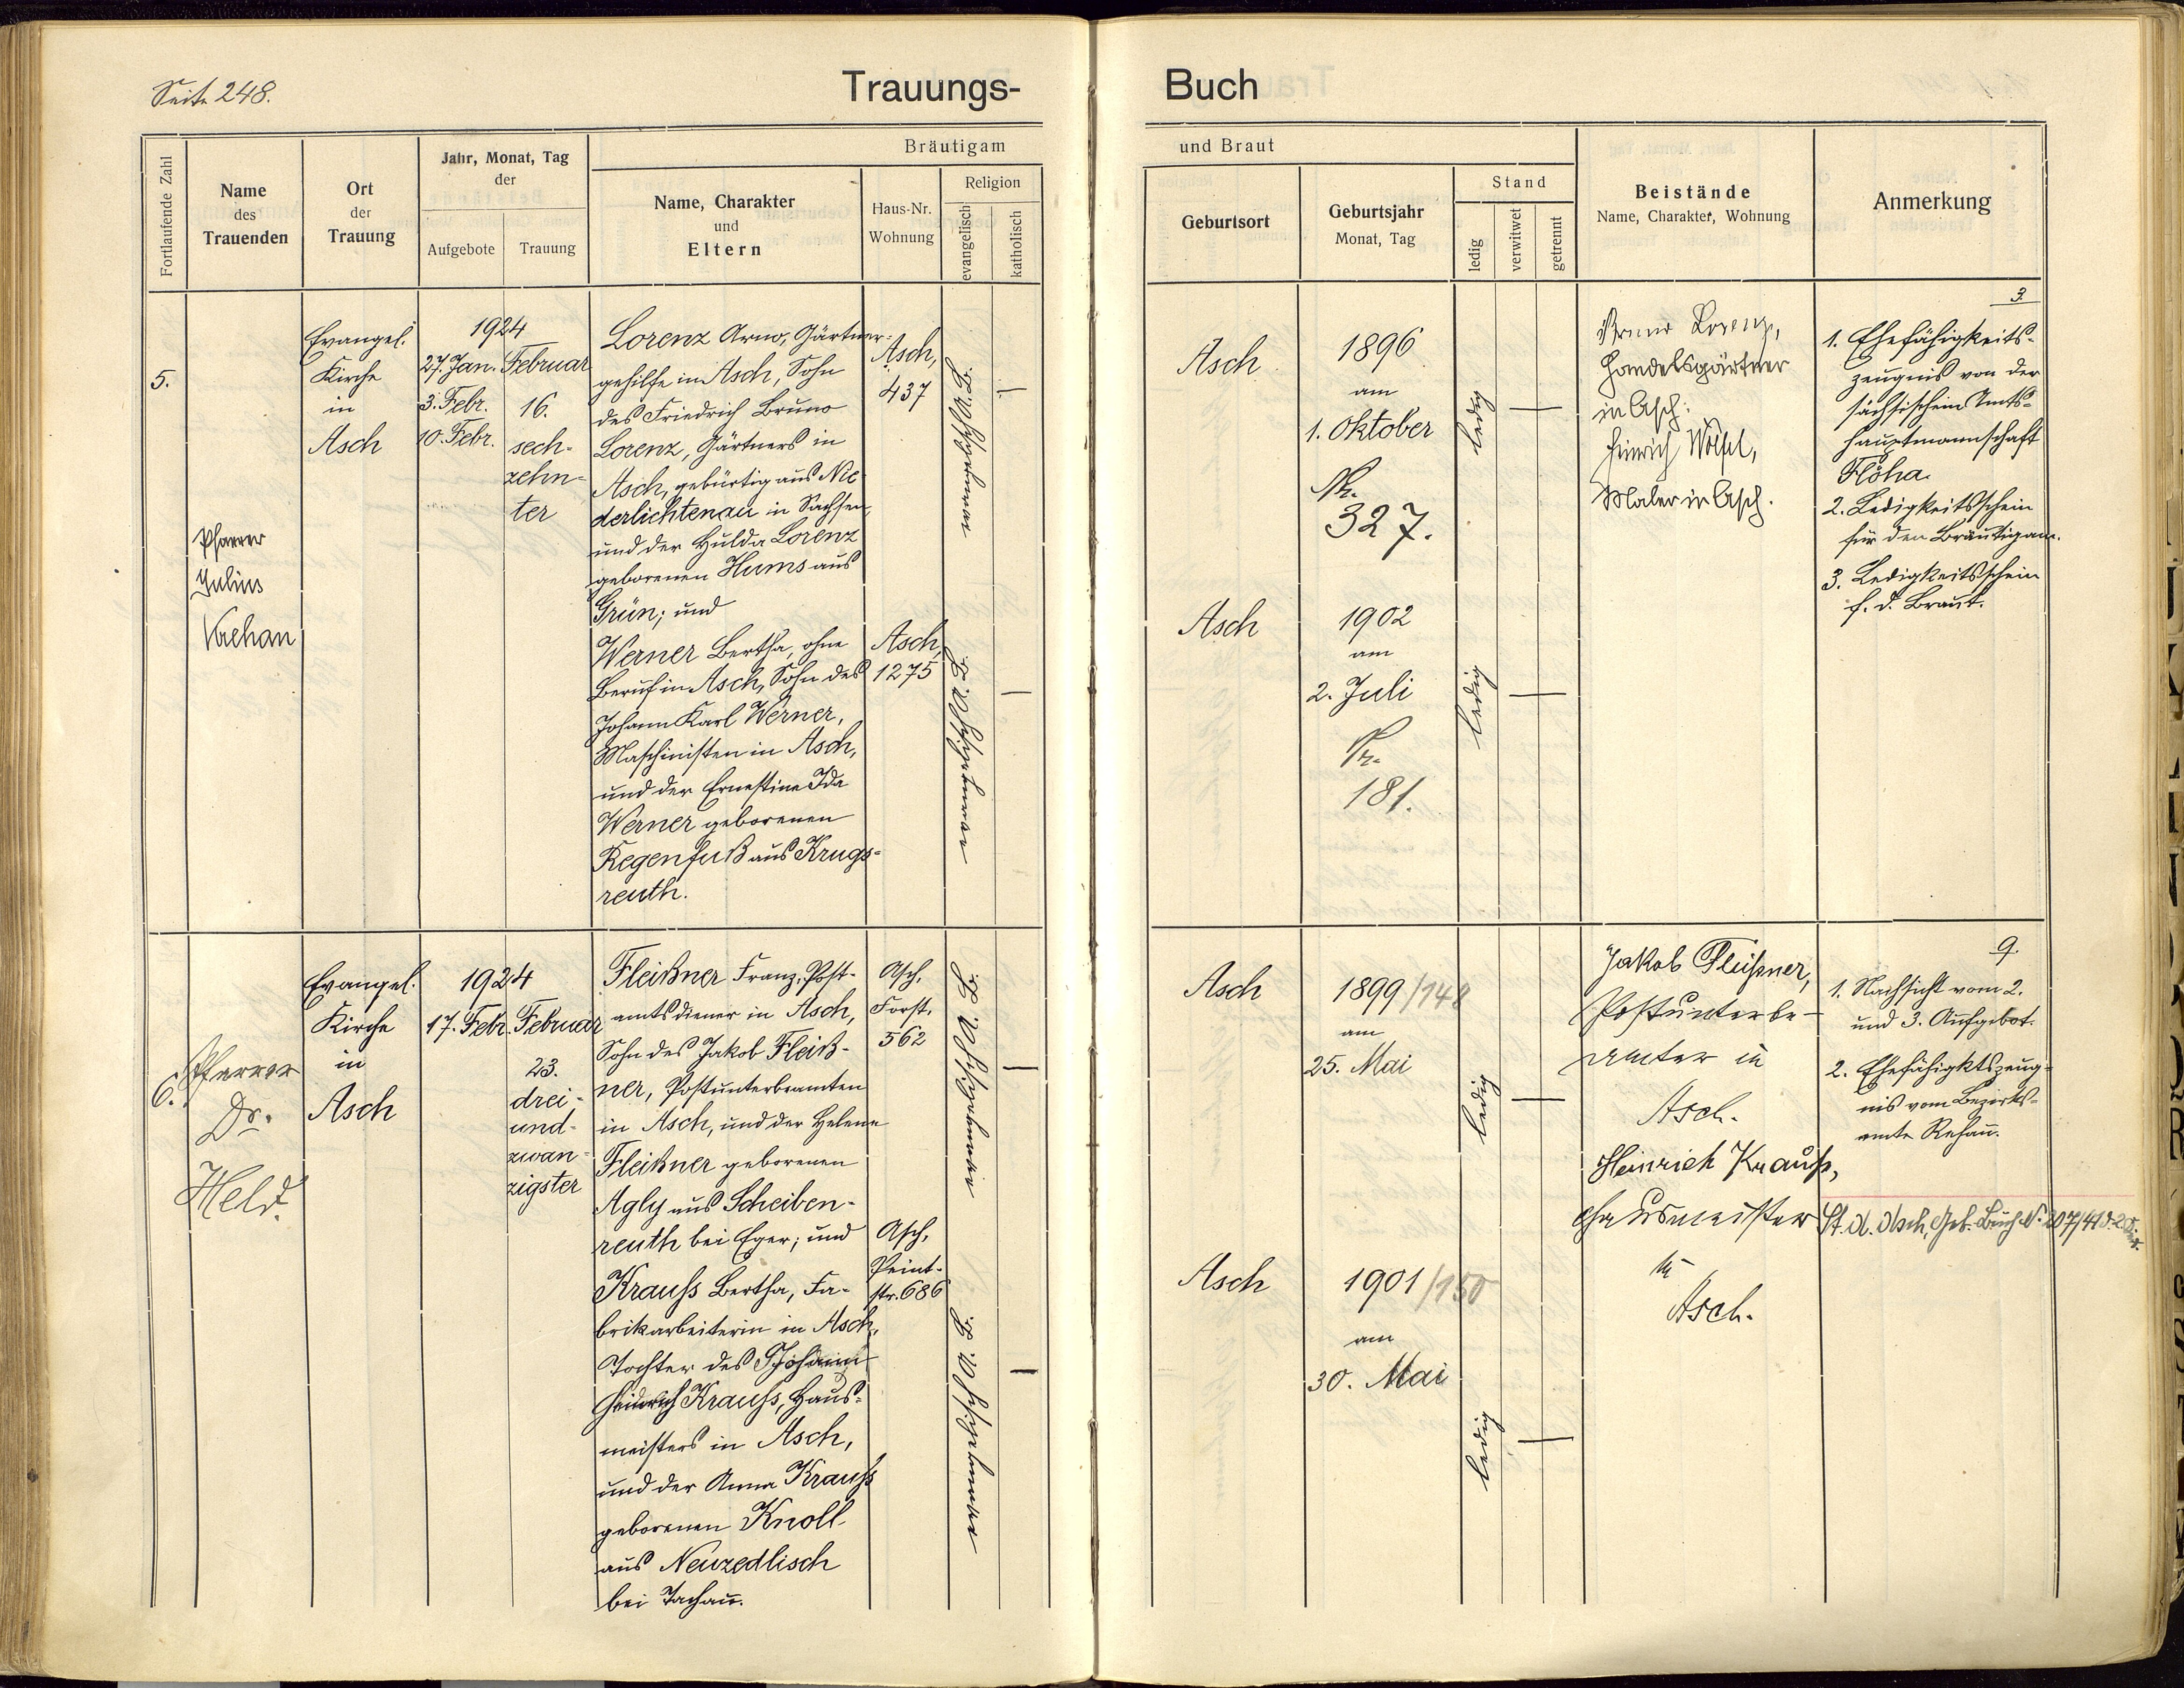 Seite 248.
Trauungs-
Buch
Fortlaufende Zahl
Name
des
Trauenden
Ort
der
Trauung
Jahr, Monat, Tag
der
Aufgebote
Trauung
Bräutigam
Name, Charakter
und
Eltern
Haus-Nr.
Wohnung
Religion
evangelisch
katholisch
und Braut
Geburtsort
Geburtsjahr
Monat, Tag
Stand
ledig
verwitwet
getrennt
Beistände
Name, Charakter, Wohnung
Anmerkung
5.
Pfarrer
Julius
Evangel.
Kirche
in
Asch
1924
27. Jan.
3. Febr.
10. Febr.
Februar
16.
sech-
zehn-
ter
Lorenz Arno, Gärtner-
gehilfe in Asch, Sohn
des Friedrich Bruno
Lorenz, Gärtners in
Asch, gebürtig aus Nie-
derlichtenau in Sachsen,
und der Hulda Lorenz
geborenen Hums aus
Grün; und
Werner Bertha, ohne
Beruf in Asch, Sohn des
Johann Karl Werner,
Maschinisten in Asch,
und der Ernestine Ida
Werner geborenen
Regenfuß aus Krugs-
reuth.
Asch,
437
Asch,
1275
Asch
1896
am
1. Oktober
327.
ledig
Asch
1902
am
2. Juli
181.
ledig
Bruno Lorenz,
Handelsgärtner
in Asch.
Heinrich
Maler in Asch.
3.
1. Ehefähigkeits-
zeugnis von der
sächsischen Amts-
hauptmannschaft
Flöha.
2. Ledigkeitsschein
für den Bräutigam.
3. Ledigkeitsschein
f. d. Braut.
6.
Pfarrer
Dr.
Held.
Evangel.
Kirche
in
Asch
1924
17. Febr.
Februar
23.
drei-
und-
zwan-
zigster
Fleißner Franz, Post-
amtsdiener in Asch,
Sohn des Jakob Fleiß-
ner, Postunterbeamten
in Asch, und der Helene
Fleißner geborenen
Agly aus Scheiben-
reuth bei Eger; und
Krauss Bertha, Fa-
brikarbeiterin in Asch,
Tochter des Johann
Heinrich Krauss, Haus-
meisters in Asch,
und der Anna Krauss
geborenen Knoll
aus Neuzedlisch
bei Tachau.
Asch,
Forst.
562
Asch,
Peint-
str. 686
Asch
1899/148
am
25. Mai
ledig
Asch
1901/150
am
30. Mai
ledig
Jakob Fleißner,
Postunterbe-
amter in
Asch.
Heinrich Krauss,
Hausmeister
in
Asch.
9.
1. Nachsicht vom 2.
und 3. Aufgebot.
2. Ehefähigktszeug-
nis vom Bezirks-
amte Rehau.
St. A. Asch, Geb. Buch N. 207/41